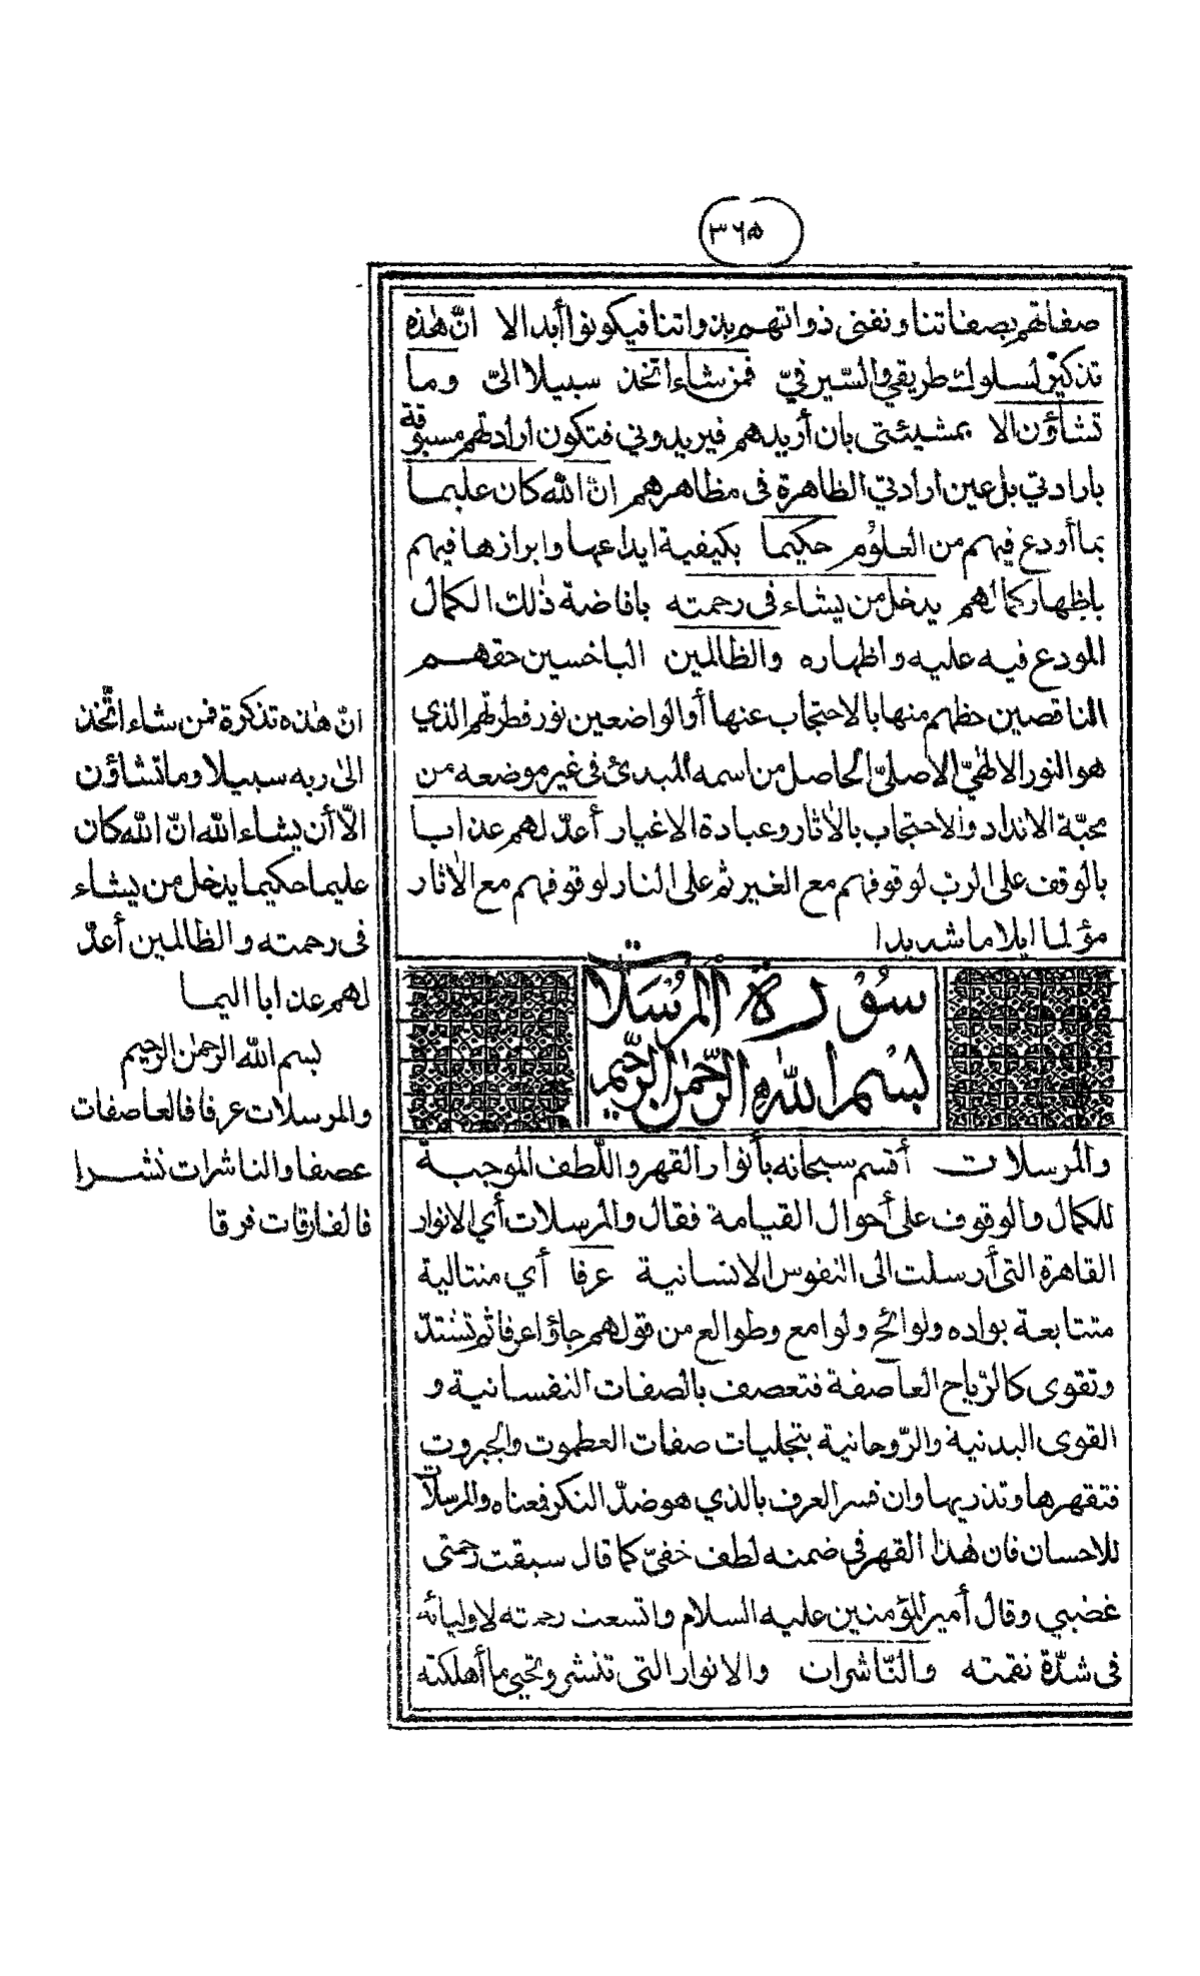 ٣٦٥
صفاتهم بصفاتنا ونفنى ذواتهم بذواتنا فيكونوا أبدا لا انّ هٰذه
تذكير لسلوك طريقي والسّير فيّ فمن شاء اتخذ سبيلا الىّ وما
تشاؤن الا بمشيئتى بان أريدهم فيريدوني فتكون ارادتهم مسبوقة
بارادتي بل عين ارادتي الظاهرة فى مظاهرهم انّ الله كان عليما
بما أودع فيهم من العلوم حكيما بكيفية ايداعها وابرازها فيهم
باظهار كمالهم يدخل من يشاء فى رحمته بافاضة ذٰلك الكمال
المودع فيه عليه واظهاره والظالمين الباخسين حقهم
الناقصين حظهم منها بالاحتجاب عنها أو الواضعين نور فطرتهم الذي
هو النور الالٰهيّ الاصليّ الحاصل من اسمه المبدئ فى غير موضعه من
محبّة الانداد والاحتجاب بالآثار وعبادة الاغيار أعدّ لهم عذابا
بالوقف على الربّ لوقوفهم مع الغير ثم على النار لوقوفهم مع الآثار
مؤلما ايلاما شديدا
سورة المرسلات
بسم الله الرّحمٰن الرّحيم
والمرسلات أقسم سبحانه بأنوار القهر واللّطف الموجبة
للكمال والوقوف على أحوال القيامة فقال والمرسلات أي الانوار
القاهرة التى أرسلت الى النفوس الانسانية عرفا أي متتالية
متتابعة بواده ولوائح ولوامع وطوالع من قولهم جاؤا عرفا ثم تشتدّ
وتقوى كالرّياح العاصفة فتعصف بالصفات النفسانية و
القوى البدنية والرّوحانية بتجليات صفات العظموت والجبروت
فتقهرها وتذريها وان فسر العرف بالذي هو ضدّ النكر فمعناه والمرسلات
للاحسان فان هٰذا القهر في ضمنه لطف خفيّ كما قال سبقت رحمتى
غضبي وقال أمير المؤمنين عليه السلام واتسعت رحمته لاوليائه
فى شدّة نقمته والنّاشرات والانوار التى تنشر وتحيي ما أهلكته
انّ هٰذه تذكرة فمن شاء اتّخذ
الىٰ ربه سبيلا وما تشاؤن
الّا أن يشاء الله انّ الله كان
عليما حكيما يدخل من يشاء
فى رحمته والظالمين أعدّ
لهم عذابا اليما
بسم الله الرحمٰن الرحيم
والمرسلات عرفا فالعاصفات
عصفا والناشرات نشرا
فالفارقات فرقا